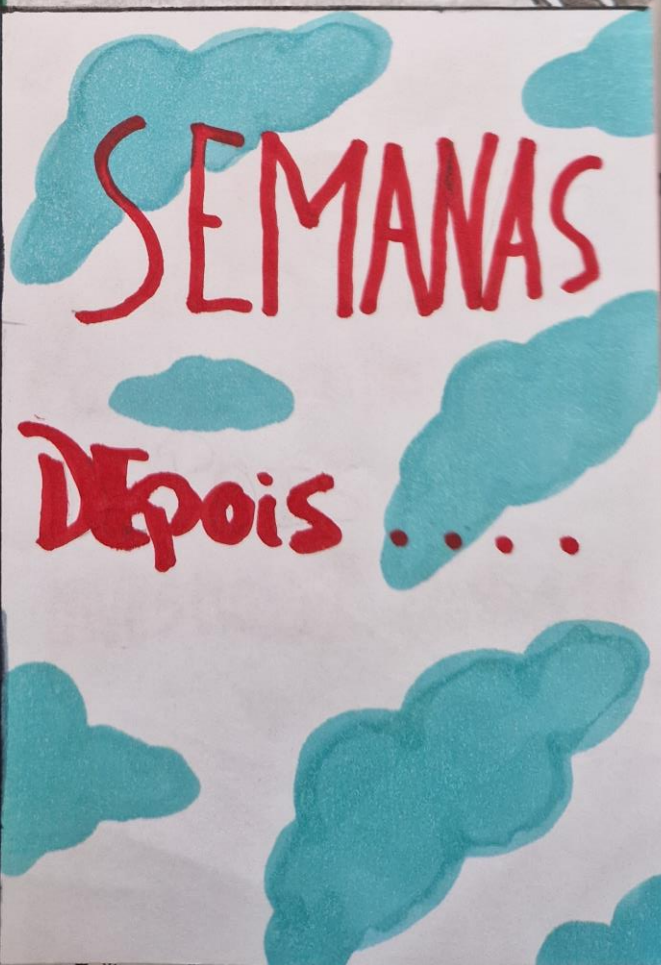 SEMANAS
DEpois ....